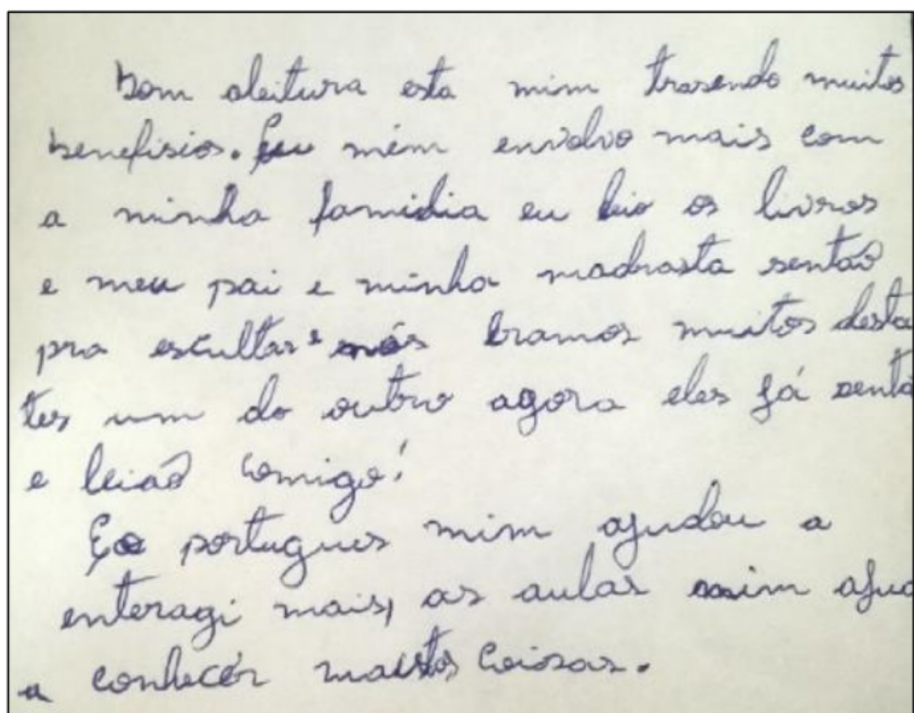 Bom aleitura esta mim trasendo muitos
benefisios. Eu mim envolvo mais com
a minha familia eu leio os livros
e meu pai e minha madrasta sentaõ
pra escultar e nós eramos muitos dista
tes um do outro agora eles já senta
e leiaõ comigo!
E o portugues mim ajudou a
enteragi mais, as aulas mim ajud
a conhecer muitos coiosas.